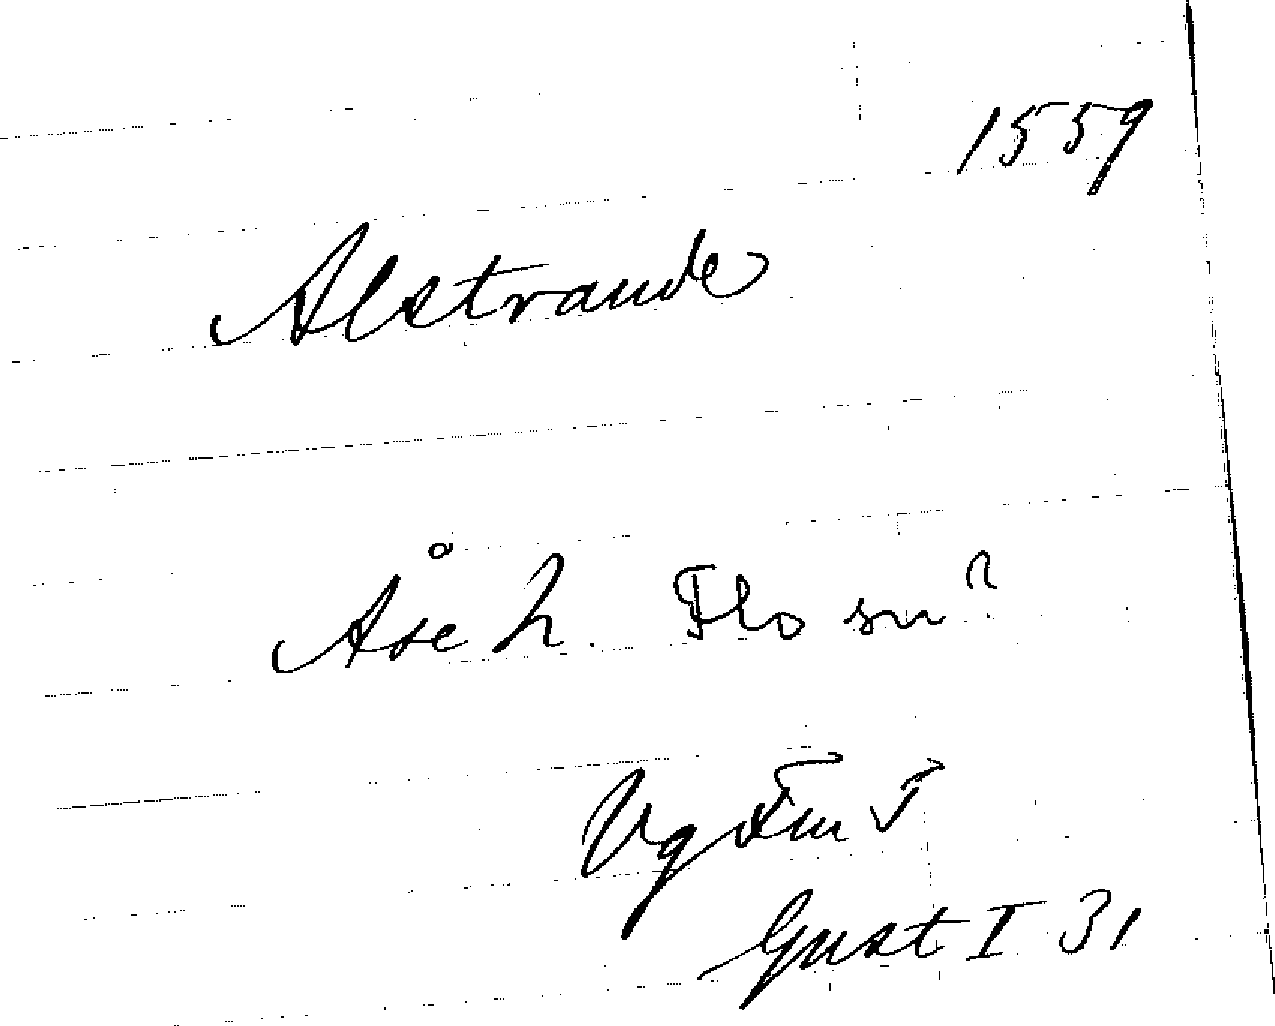 1559
Alstrande
Åse h. Flo sn?
Vg Fm I
Gust I 31